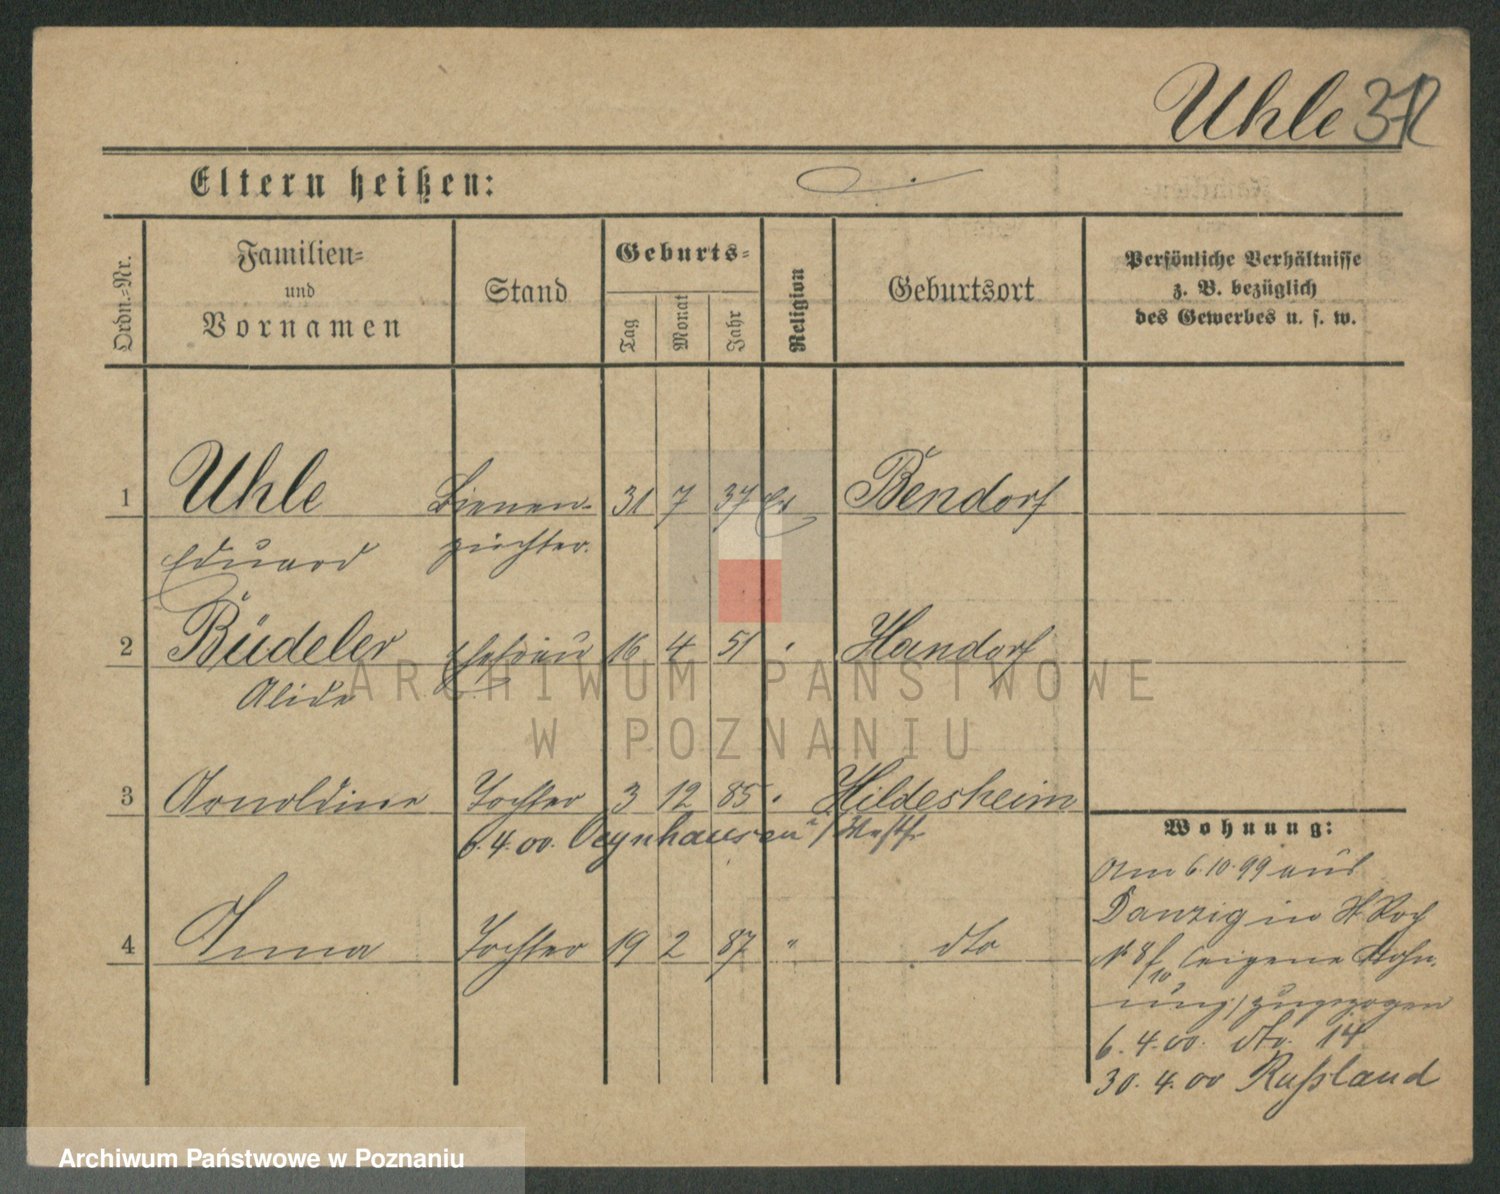 Uhle 372
Eltern heißen:
Ordn.-Nr.
Familien-
und
Vornamen
Stand
Geburts-
Tag
Monat
Jahr
Religion
Geburtsort
Persönliche Verhältnisse
z. B. bezüglich
des Gewerbes u. s. w.
1 Uhle Bienen- 31 7 37 Ev Bendorf
Eduard züchter.
2 Büdeler Ehefrau 16 4 51 " Handorf
Alide
3 Arnoldine Tochter 3 12 85 " Hildesheim
6.4.00. Oeynhausen i/Westf.
4 Anna Tochter 19 2 87 " dto
Wohnung:
Am 6.10.99 aus
Danzig in St Roch
N 8/10 (eigene Wohn-
nung) zugezogen
6.4.00. dto. 14
30.4.00 Rußland
ARCHIWUM PAŃSTWOWE
W POZNANIU
Archiwum Państwowe w Poznaniu